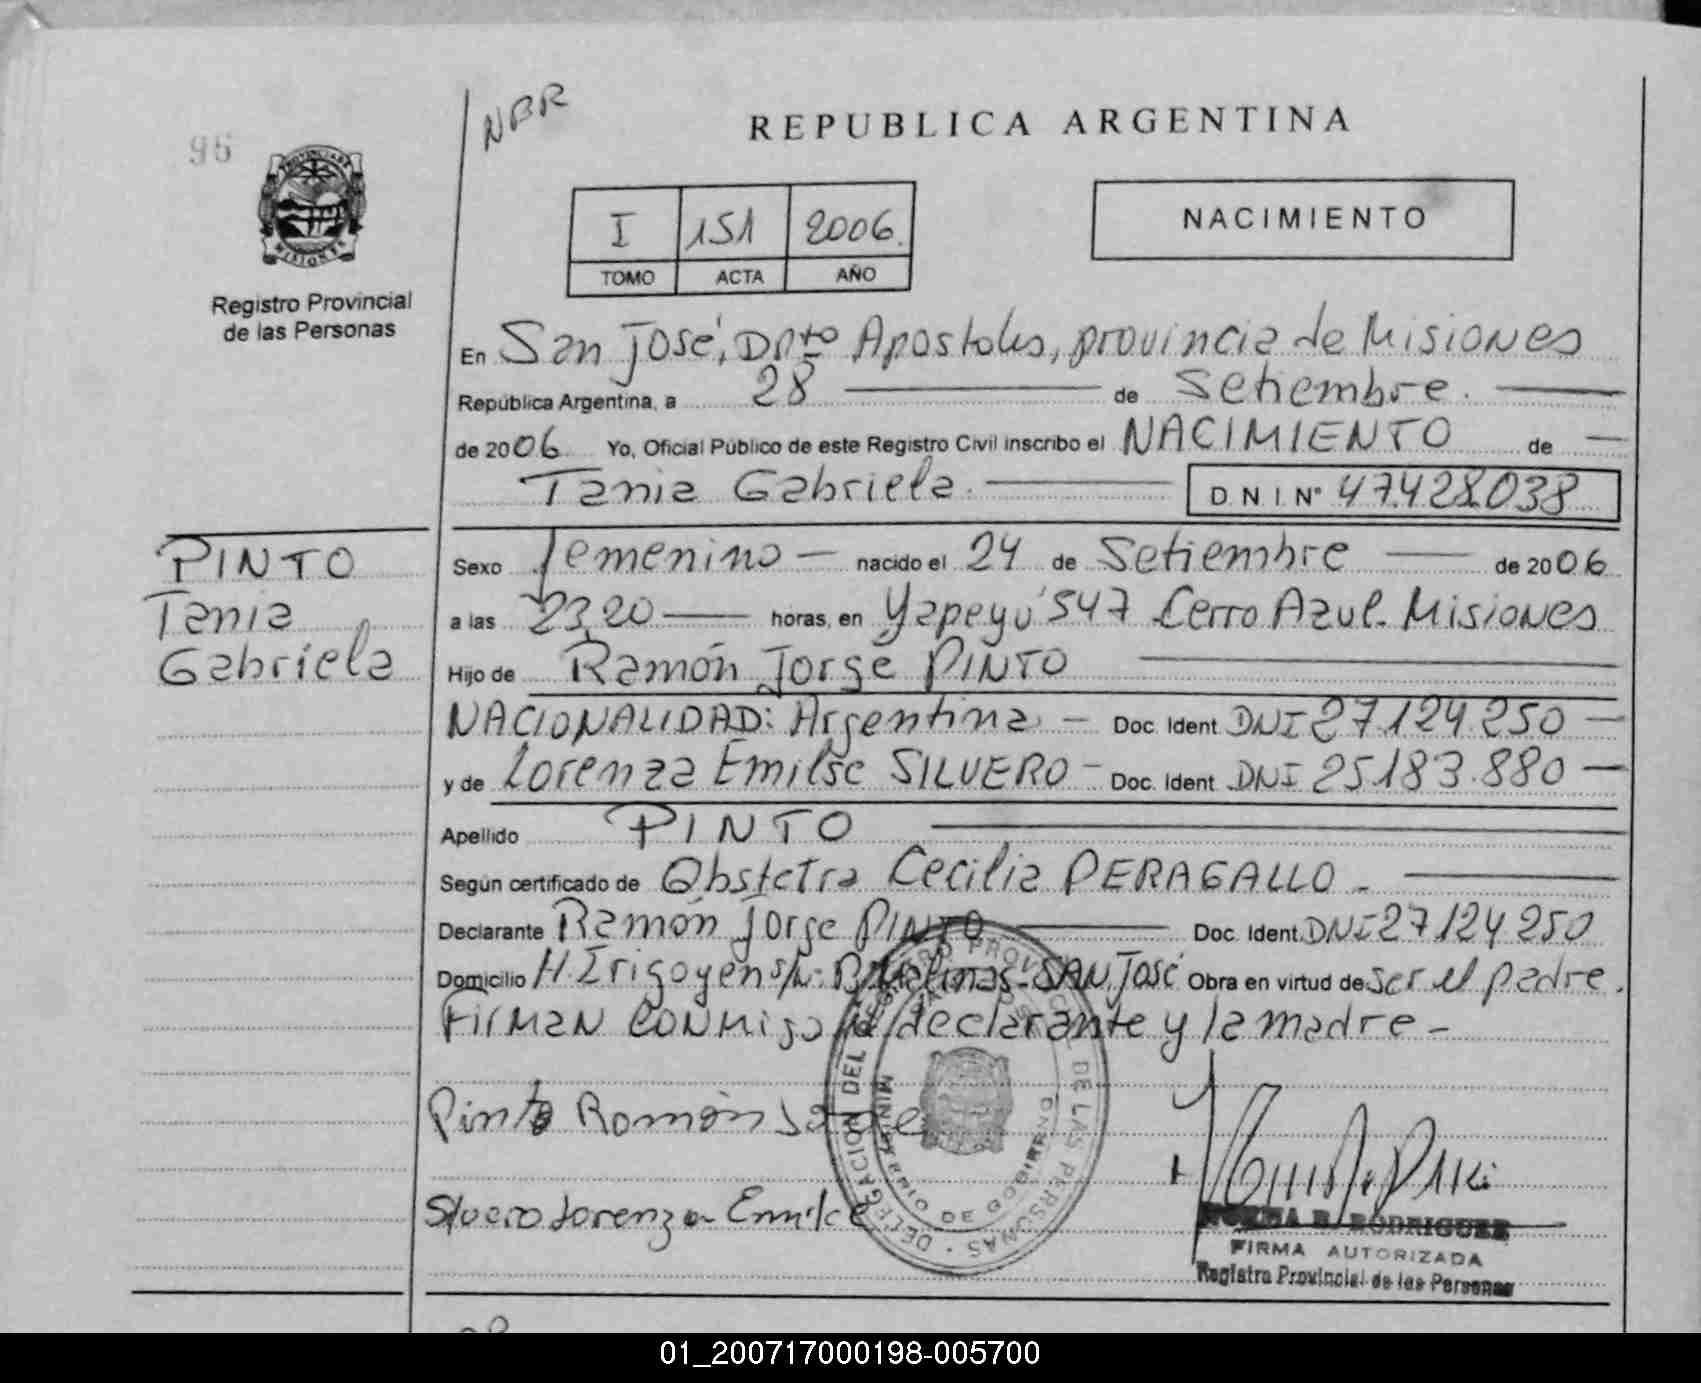 96
NBR
REPUBLICA ARGENTINA
PROVINCIA DE
MISIONES
Registro Provincial
de las Personas
I 151 2006.
TOMO ACTA AÑO
NACIMIENTO
En San José, Dpto Apostoles, provincia de Misiones
República Argentina, a 28 de Setiembre.
de 2006 Yo, Oficial Público de este Registro Civil inscribo el NACIMIENTO de
Tania Gabriela. D.N.I. N° 47.428.038
PINTO
Tania
Gabriela
Sexo femenino nacido el 24 de Setiembre de 2006
a las 23,20 horas, en Yapeyú 547 Cerro Azul. Misiones
Hijo de Ramón Jorge PINTO
NACIONALIDAD: Argentina - Doc. Ident. DNI 27.124.250
y de Lorenza Emilse SILVERO - Doc. Ident. DNI 25.183.880
Apellido PINTO
Según certificado de Obstetra Cecilia PERAGALLO -
Declarante Ramón Jorge PINTO Doc. Ident. DNI 27.124.250
Domicilio H. Irigoyen s/n: SAN José Obra en virtud de ser el padre.
Firman conmigo el declarante y la madre -
Pinto Ramón Jorge
Silvero Lorenza Emilce
DELEGACION DEL REGISTRO PROVINCIAL DE LAS PERSONAS
MINISTERIO DE GOBIERNO
NORMA B. RODRIGUEZ
FIRMA AUTORIZADA
Registro Provincial de las Personas
01_200717000198-005700